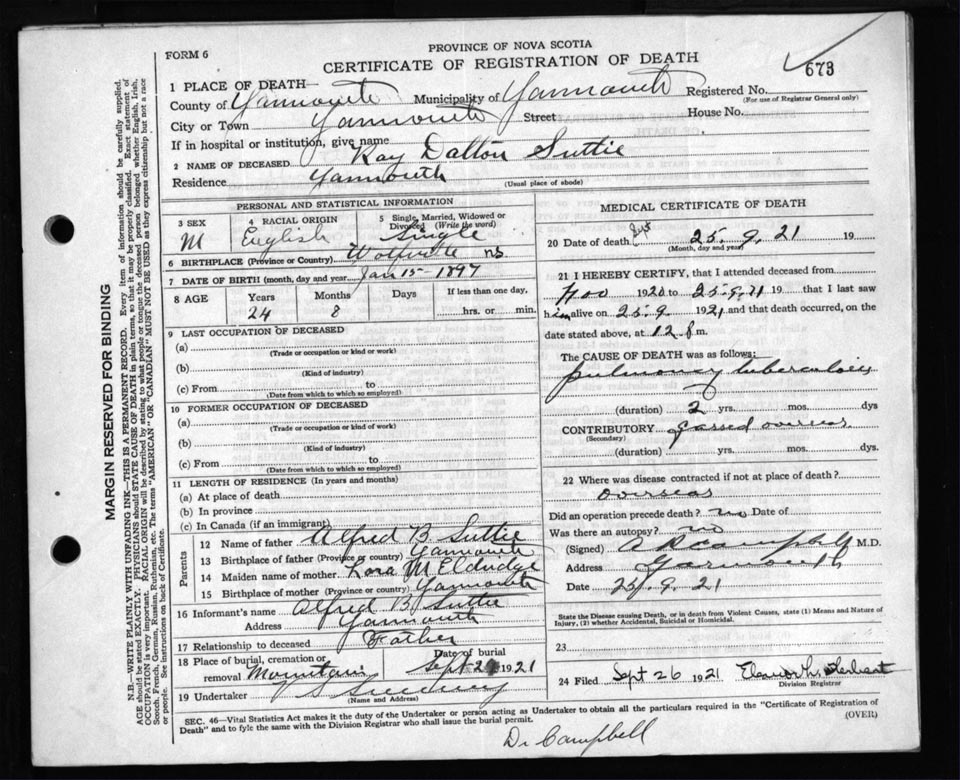 FORM 6
PROVINCE OF NOVA SCOTIA
CERTIFICATE OF REGISTRATION OF DEATH
673
1 PLACE OF DEATH
County of Yarmouth Municipality of Yarmouth Registered No.
(For use of Registrar General only)
City or Town Yarmouth Street House No.
If in hospital or institution, give name
2 NAME OF DECEASED Ray Dalton Suttie
Residence Yarmouth
(Usual place of abode)
PERSONAL AND STATISTICAL INFORMATION
3 SEX M
4 RACIAL ORIGIN English
5 Single, Married, Widowed or Divorced (Write the word) Single
6 BIRTHPLACE (Province or Country) Wolfville N.S.
7 DATE OF BIRTH (month, day and year) Jan 15 1897
8 AGE Years 24 Months 8 Days If less than one day, hrs. or min.
9 LAST OCCUPATION OF DECEASED
(a)
(Trade or occupation or kind of work)
(b)
(Kind of industry)
(c) From to
(Date from which to which so employed)
10 FORMER OCCUPATION OF DECEASED
(a)
(Trade or occupation or kind of work)
(b)
(Kind of industry)
(c) From to
(Date from which to which so employed)
11 LENGTH OF RESIDENCE (In years and months)
(a) At place of death
(b) In province
(c) In Canada (if an immigrant)
Parents
12 Name of father Alfred B Suttie
13 Birthplace of father (Province or country) Yarmouth
14 Maiden name of mother Lora M Eldridge
15 Birthplace of mother (Province or country) Yarmouth
16 Informant's name Alfred B Suttie
Address Yarmouth
17 Relationship to deceased Father
18 Place of burial, cremation or removal Mountain Date of burial Sept 1921
19 Undertaker Sweeney
(Name and Address)
MEDICAL CERTIFICATE OF DEATH
20 Date of death 25. 9. 21 19
(Month, day and year)
21 I HEREBY CERTIFY, that I attended deceased from
1920 to 25.9.21 19 that I last saw
him alive on 25.9 1921 and that death occurred, on the
date stated above, at 12 m.
The CAUSE OF DEATH was as follows:
pulmonary tuberculosis
(duration) 2 yrs. mos. dys
CONTRIBUTORY gassed overseas
(Secondary)
(duration) yrs. mos. dys.
22 Where was disease contracted if not at place of death?
overseas
Did an operation precede death no Date of
Was there an autopsy? no
(Signed) Campbell M.D.
Address Yarmouth
Date 25.9.21
State the Disease causing Death, or in death from Violent Causes, state (1) Means and Nature of
Injury, (2) whether Accidental, Suicidal or Homicidal.
23
24 Filed Sept 26 1921
Division Registrar
SEC. 46—Vital Statistics Act makes it the duty of the Undertaker or person acting as Undertaker to obtain all the particulars required in the "Certificate of Registration of
Death" and to fyle the same with the Division Registrar who shall issue the burial permit.
(OVER)
Dr Campbell
MARGIN RESERVED FOR BINDING
N.B.—WRITE PLAINLY WITH UNFADING INK—THIS IS A PERMANENT RECORD. Every item of information should be carefully supplied.
AGE should be stated EXACTLY. PHYSICIANS should STATE CAUSE OF DEATH in plain terms, so that it may be properly classified. Exact statement of
OCCUPATION is very important. RACIAL ORIGIN will be described by stating to what people or tongue the deceased person belonged whether English, Irish,
Scotch, French, German, Russian, Ruthenian, etc. The terms "AMERICAN" OR "CANADIAN" MUST NOT BE USED as they express citizenship but not a race
or people. See instructions on back of Certificate.